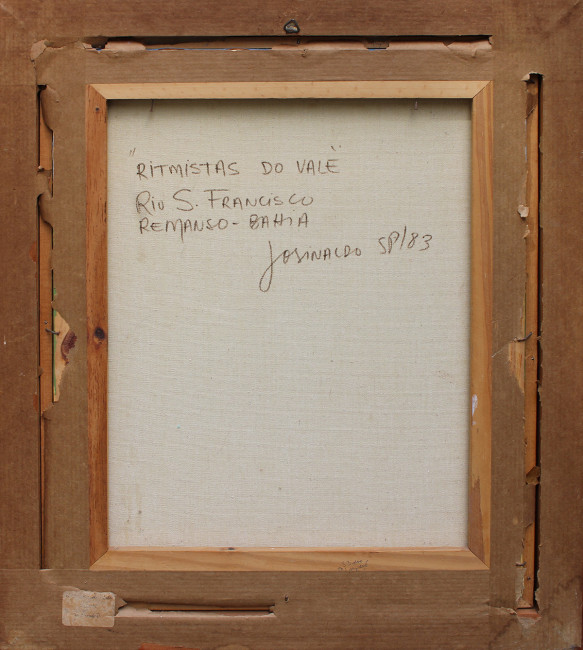 "RITMISTAS DO VALE"
RIO S. FRANCISCO
REMANSO - BAHIA
JOSINALDO SP/83